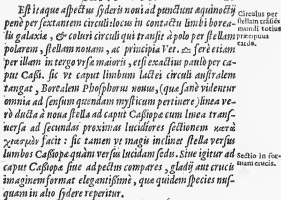 Est itaque aspectu syderis noui ad punctum æquinoctij
penè per sextantem circuli: locus in contactu limbi borea-
lis galaxiæ, & coluri circuli qui transit à polo per stellam
polarem, stellam nouam, ac principia Ver. ♎ ferè etiam
per illam in tergo vrsæ maioris, etsi exactius paulò per ca-
put Cassi. sic vt caput limbum lactei circuli australem
tangat, Borealem Phosphorus nouus, (quæ sanè videntur
omnia ad sensum quendam mysticum pertinere) linea ve-
rò ducta à noua stella ad caput Cassiopeæ cum linea trans-
uersa ad secundas proximas lucidiores sectionem κατὰ
χιασμὸν facit: sic tamen vt magis inclinet stella versus
lumbos Cassiopeæ quàm versus lucidam sedis. Siue igitur ad
caput Cassiopeæ siue ad pectus compares, gladij aut crucis
imaginem format elegantissimè, qua quidem species nus-
quam in alio sydere reperitur.
Circulus per
stellam transiẽs
mundi totius
præcipuus
cardo.
Sectio in for-
mam crucis.